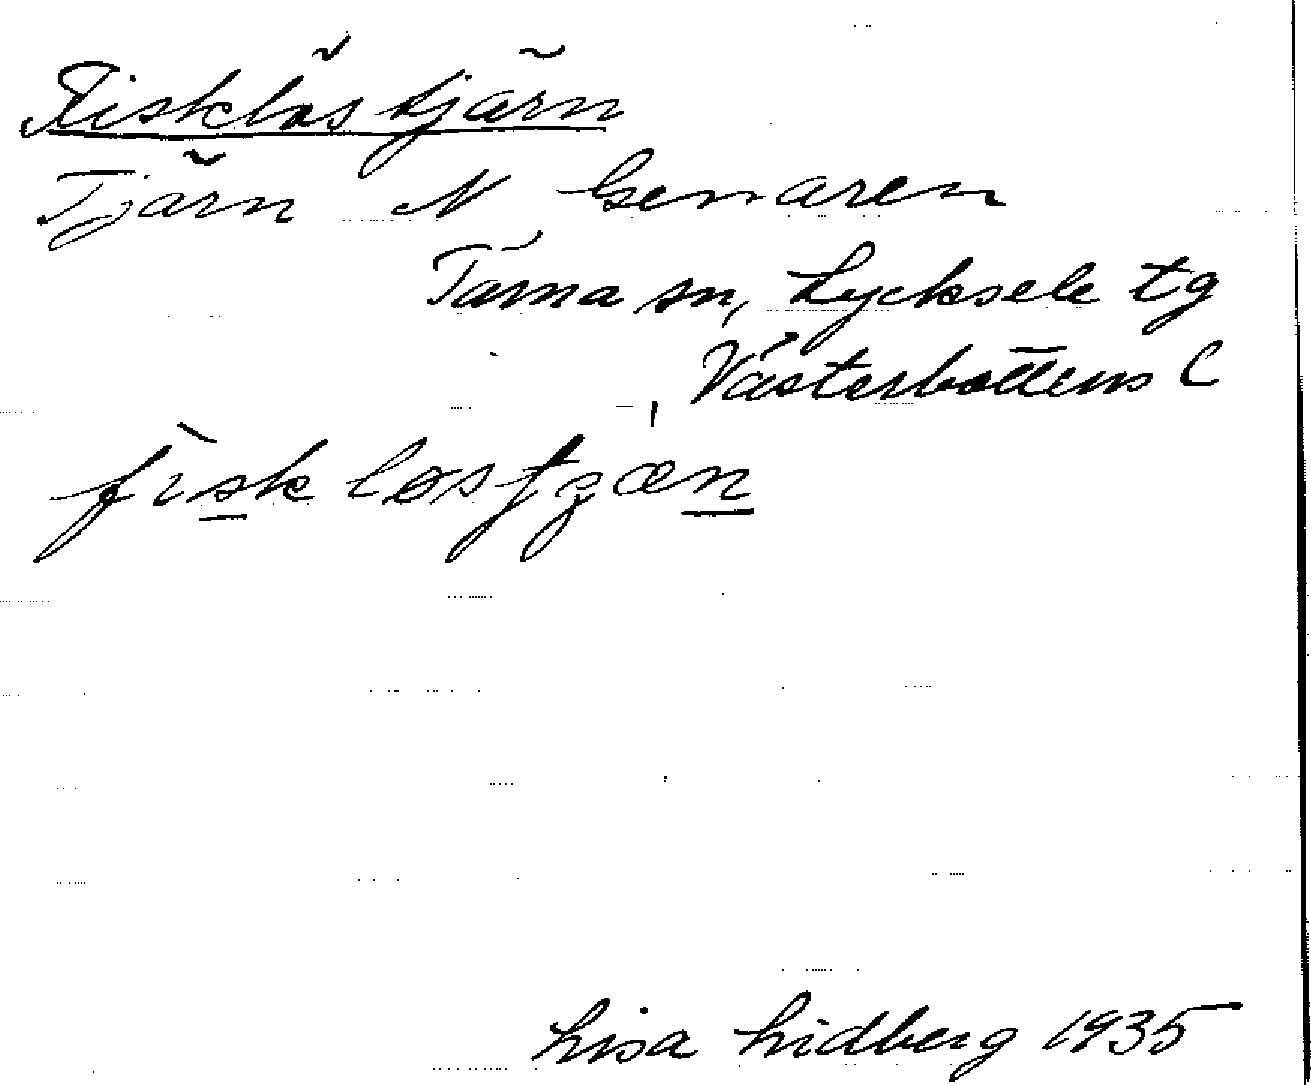 Fisklöstjärn
Tjärn N Gemaren
Tärna sn, Lycksele tg
Västerbottens l
fisk løstjæn
Lisa Lidberg 1935